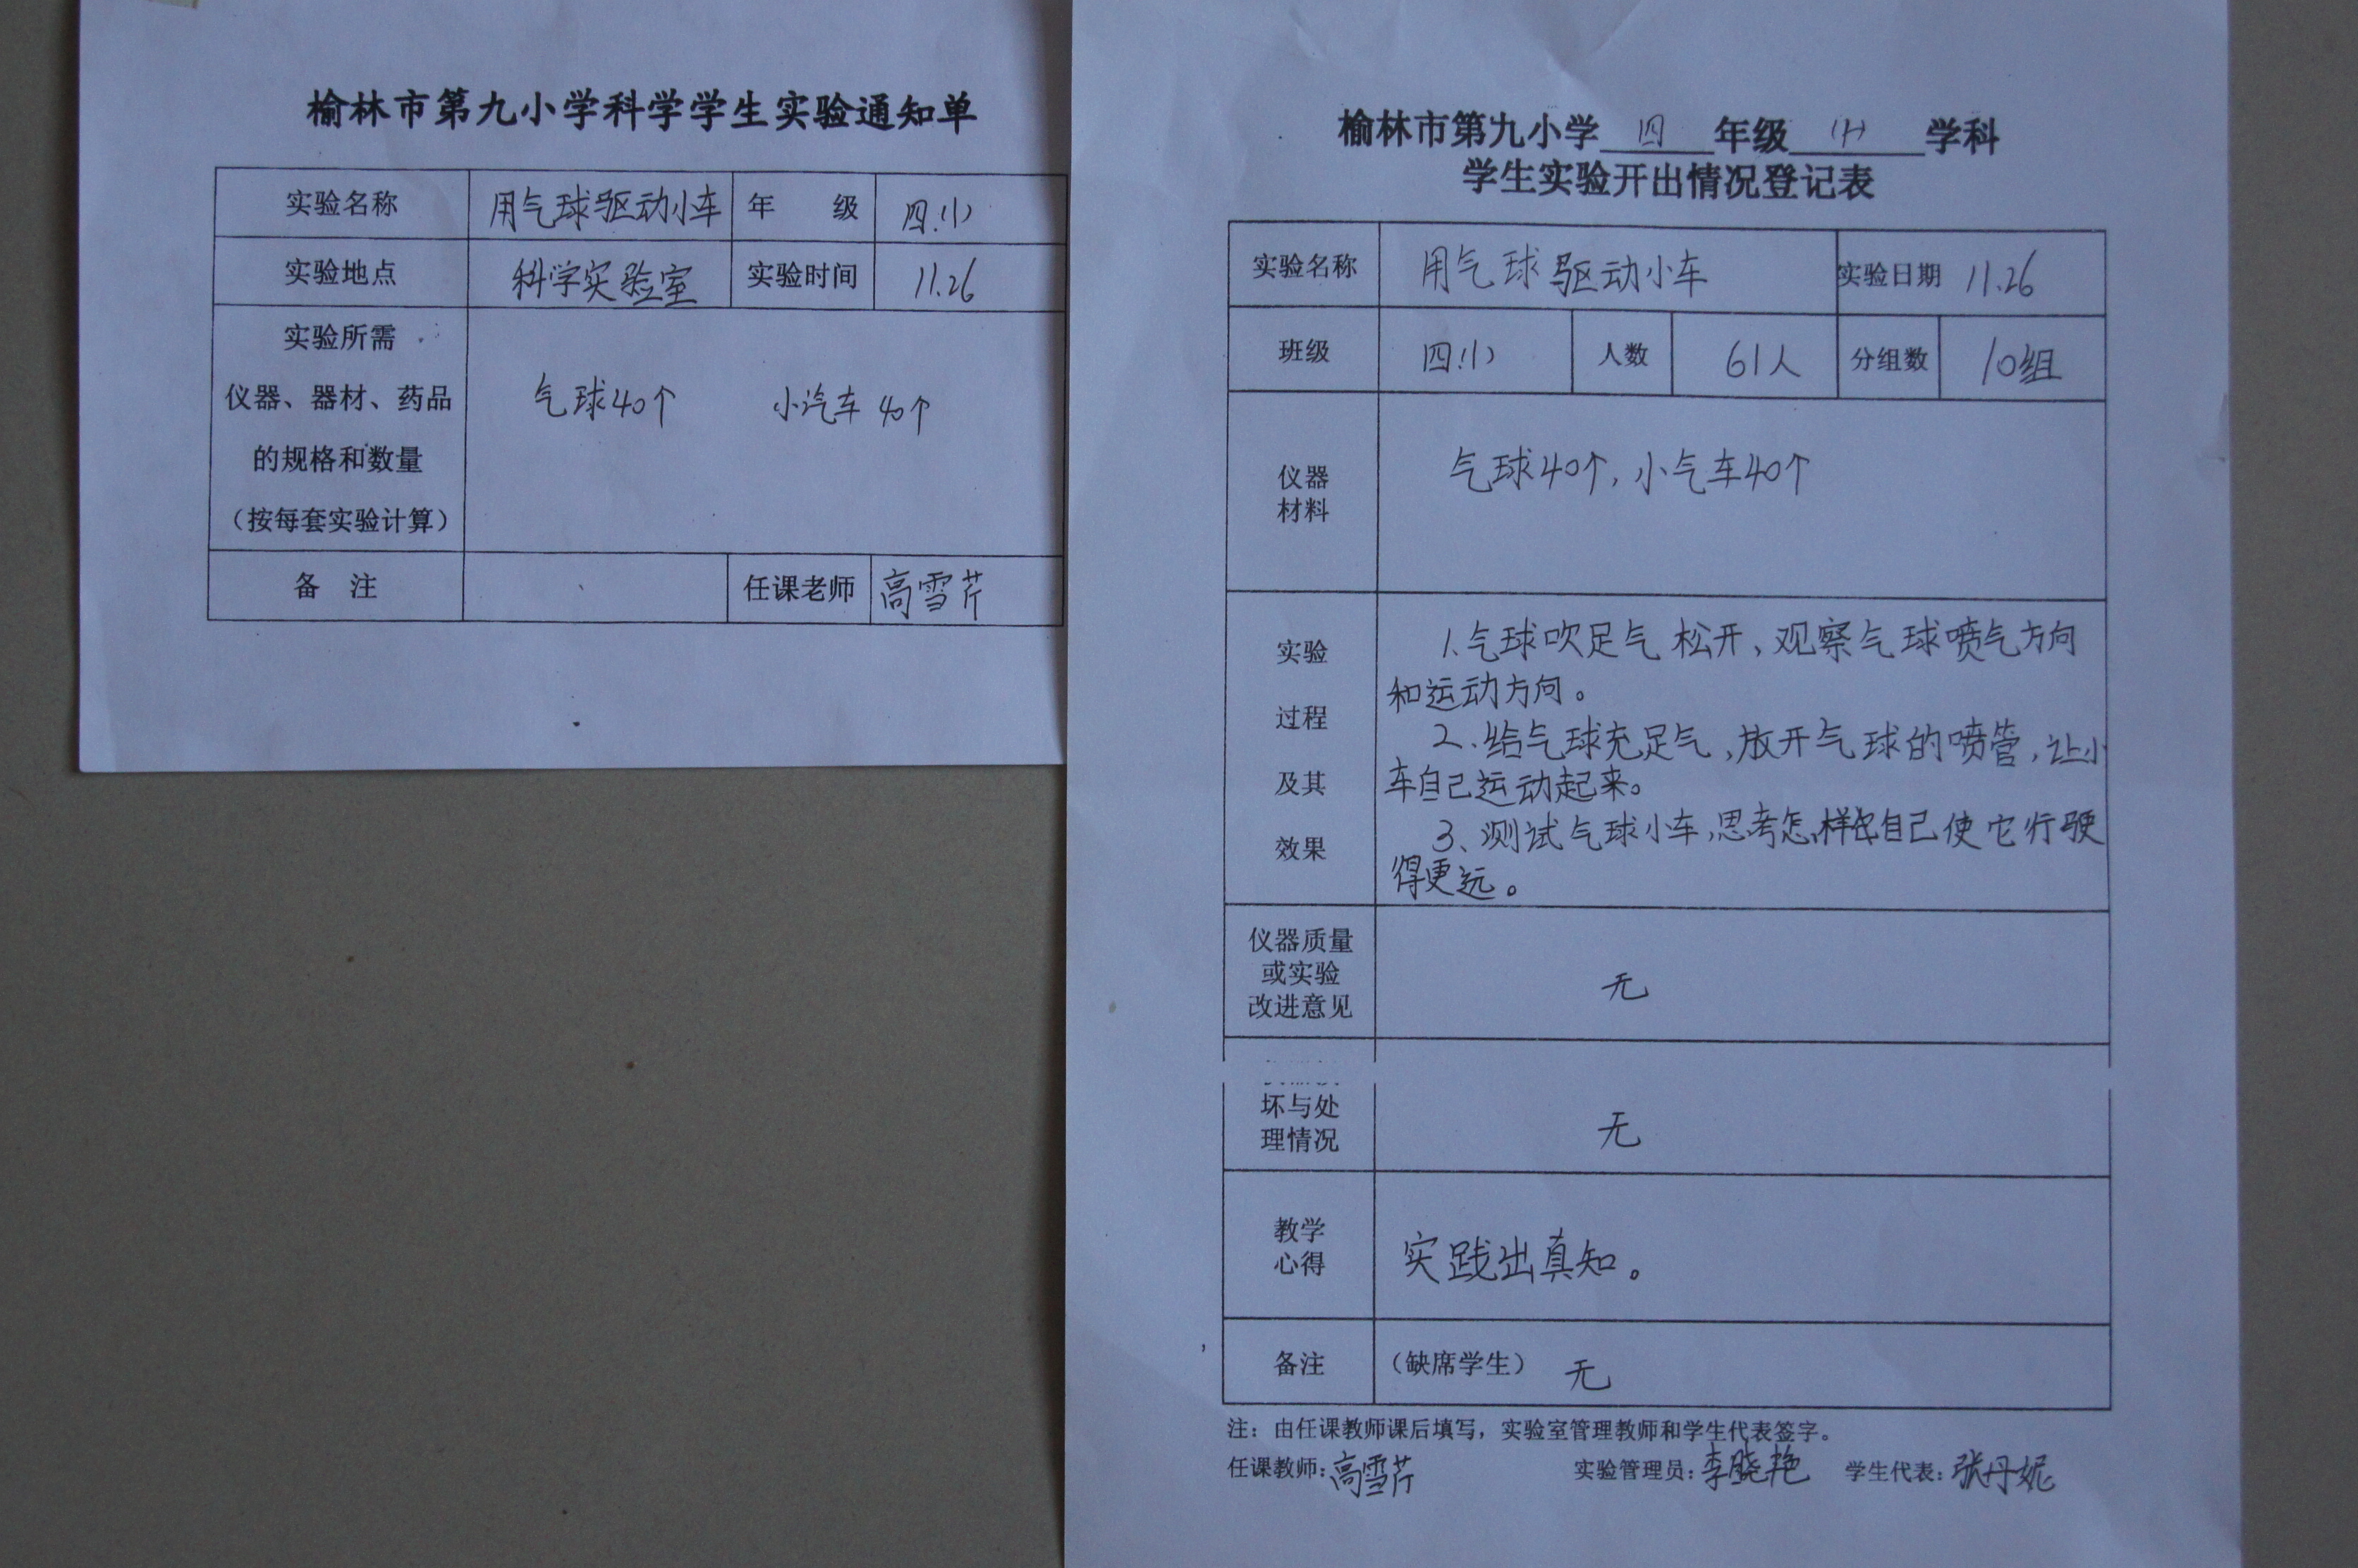 榆林市第九小学科学学生实验通知单
实验名称 用气球驱动小车 年 级 四.(1)
实验地点 科学实验室 实验时间 11.26
实验所需
仪器、器材、药品
的规格和数量
（按每套实验计算）
气球40个 小汽车40个
备 注 任课老师 高雪芹
榆林市第九小学 四 年级 学科
学生实验开出情况登记表
实验名称 用气球驱动小车 实验日期 11.26
班级 四.(1) 人数 61人 分组数 10组
仪器
材料
气球40个，小气车40个
实验
过程
及其
效果
1.气球吹足气松开，观察气球喷气方向
和运动方向。
2、给气球充足气，放开气球的喷管，让小
车自己运动起来。
3、测试气球小车，思考怎样自己使它行驶
得更远。
仪器质量
或实验
改进意见
无
坏与处
理情况
无
教学
心得
实践出真知。
备注 （缺席学生） 无
注：由任课教师课后填写，实验室管理教师和学生代表签字。
任课教师：高雪芹 实验管理员：李晓艳 学生代表：张丹妮